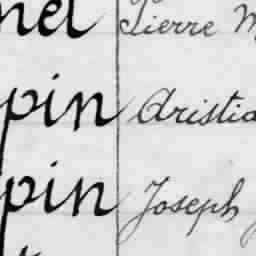 nel Pierre M
pin Aristid
pin Joseph J